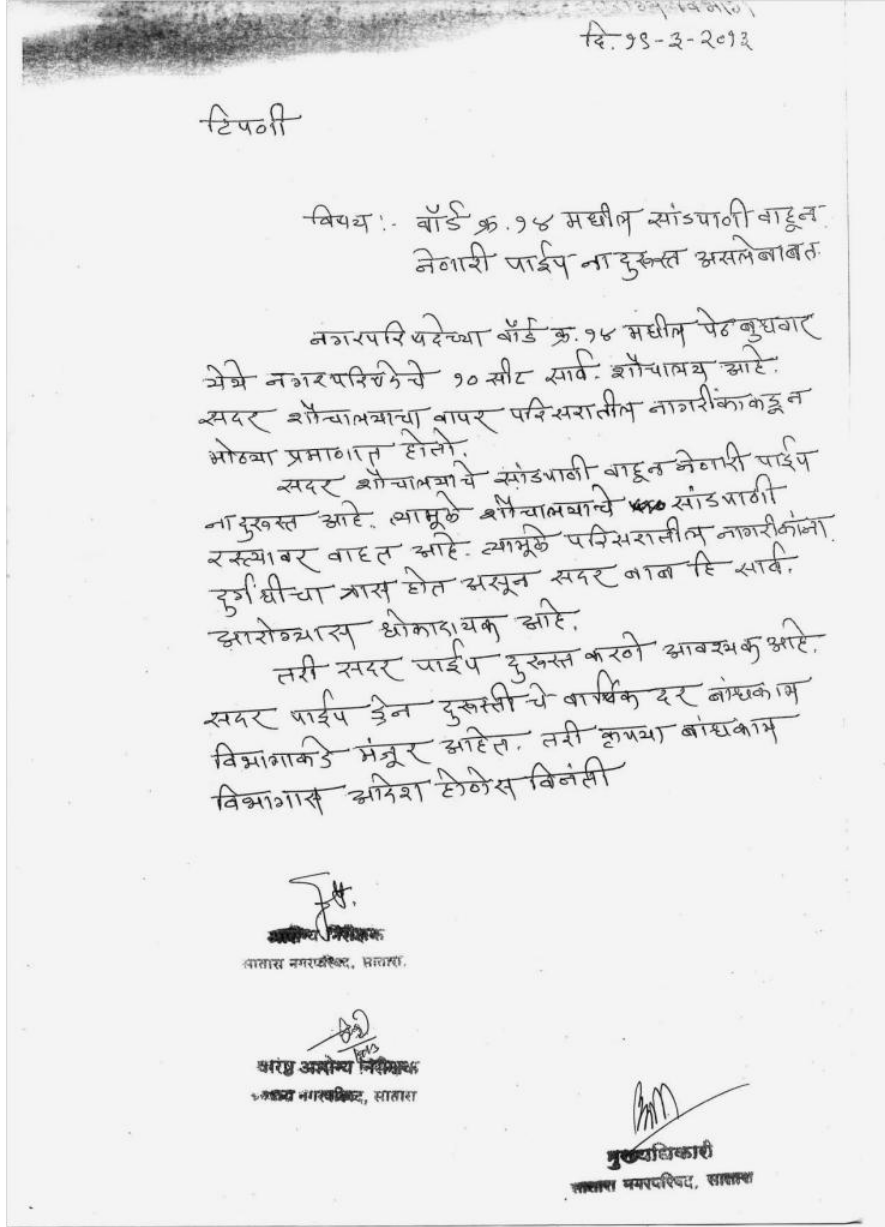 विभाग
दि. १९-३-२०१३
टिपणी
विषय :- वॉर्ड क्र. १४ मधील सांडपाणी वाहून
नेणारी पाईप नादुरूस्त असलेबाबत.
नगरपरिषदेच्या वॉर्ड क्र. १४ मधील पेठ बुधवार
येथे नगरपरिषदेचे १० सीट सार्व. शौचालय आहे.
सदर शौचालयाचा वापर परिसरातील नागरीकांकडून
मोठ्या प्रमाणात होतो.
सदर शौचालयाचे सांडपाणी वाहून नेणारी पाईप
नादुरूस्त आहे. त्यामूळे शौचालयाचे सांडपाणी
रस्त्यावर वाहत आहे. त्यामूळे परिसरातील नागरीकांना
दुर्गंधीचा त्रास होत असून सदर बाब हि सार्व.
आरोग्यास धोकादायक आहे.
तरी सदर पाईप दुरूस्त करणे आवश्यक आहे.
सदर पाईप ड्रेन दुरूस्तीचे वार्षिक दर बांधकाम
विभागाकडे मंजूर आहेत. तरी कृपया बांधकाम
विभागास आदेश होणेस विनंती
आरोग्य निरीक्षक
सातारा नगरपरिषद, सातारा.
वरिष्ठ आरोग्य निरीक्षक
सातारा नगरपरिषद, सातारा
मुख्याधिकारी
सातारा नगरपरिषद, सातारा